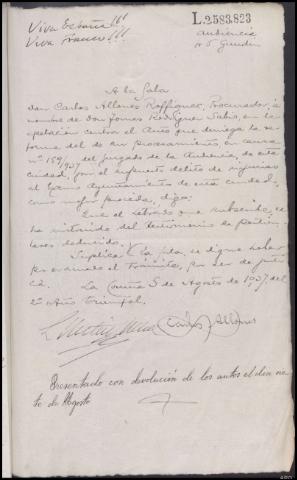 Viva España!!!
Viva Franco!!!
L.2583.823
Audiencia
A la Sala
Don Carlos Allones Raffiquez, Procurador, á
nombre de Don Tomás Rodríguez Sabio, en la
apelación contra el Auto que deniega la re-
forma del de su procesamiento, en causa
nº 159/937 del Juzgado de la Audiencia, de esta
ciudad, por el supuesto delito de injurias
al Excmo Ayuntamiento de esta ciudad,
como mejor proceda, digo:
Que el letrado que subscribe, se
ha instruido del testimonio de
deducido.
Suplico á la Sala, se digne haber
por evacuado el trámite, por ser de justi-
cia.
La Coruña 5 de Agosto de 1937 del
2º Año Triunfal.
Carlos Allones
Presentado con devolución de los autos el dia
de Agosto